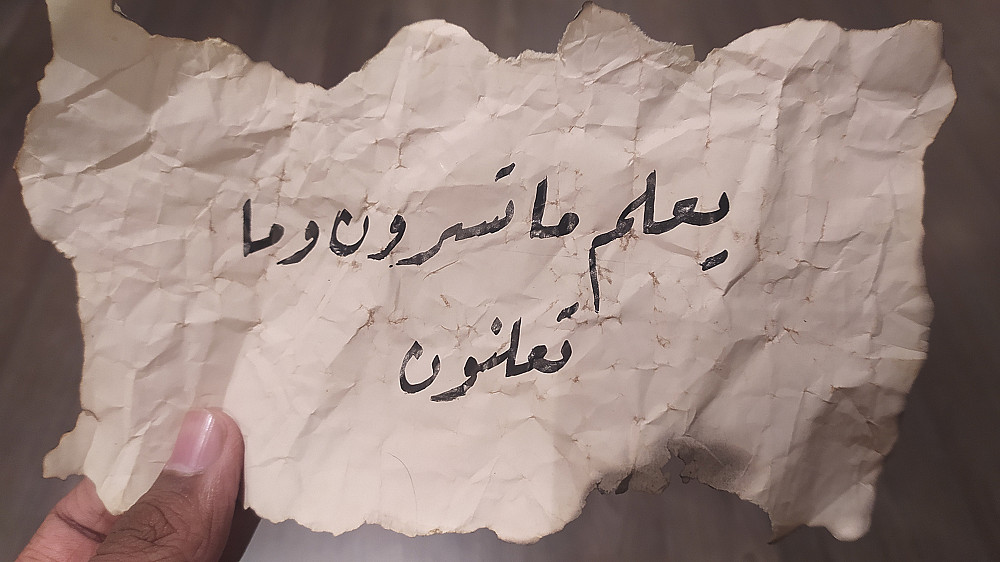 يعلم ما تسرون وما
تعلنون